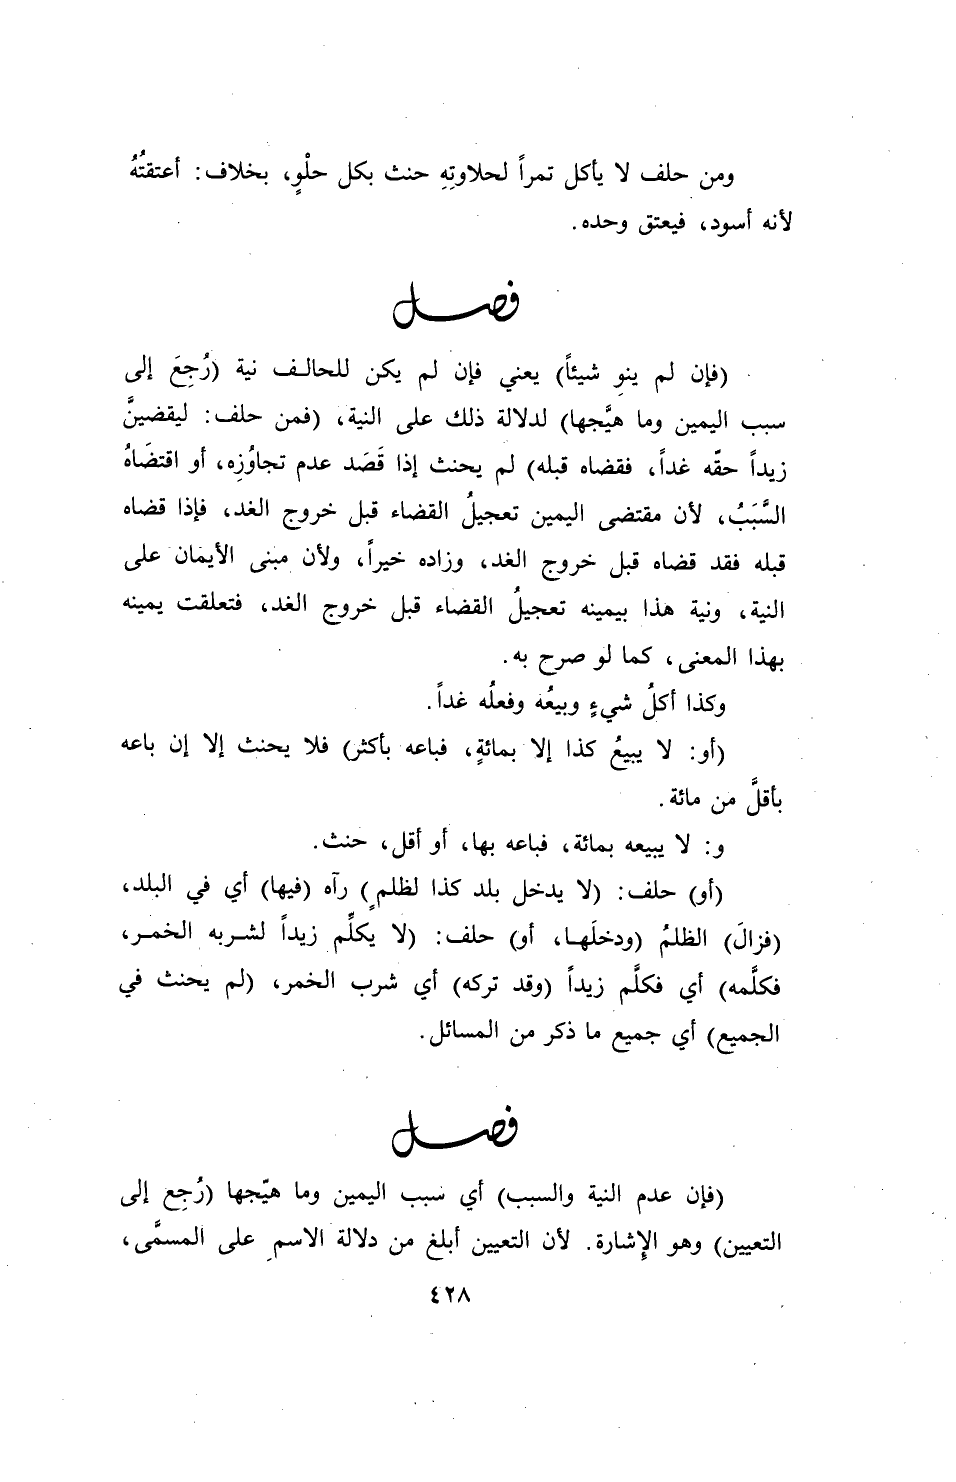 ومن حلف لا يأكل تمراً لحلاوتِهِ حنث بكل حلْوٍ، بخلاف: أعتقتُهُ
لأنه أسود، فيعتق وحده.
فصل
(فإن لم ينوِ شيئاً) يعني فإن لم يكن للحالف نية (رُجِعَ إلى
سبب اليمين وما هيَّجها) لدلالة ذلك على النية، (فمن حلف: ليقضينَّ
زيداً حقّه غداً، فقضاه قبله) لم يحنث إذا قَصَد عدم تجاوُزِه، أو اقتضَاهُ
السَّبَبُ، لأن مقتضى اليمين تعجيلُ القضاء قبل خروج الغد، فإذا قضاه
قبله فقد قضاه قبل خروج الغد، وزاده خيراً، ولأن مبنى الأيمان على
النية، ونية هذا بيمينه تعجيلُ القضاء قبل خروج الغد، فتعلقت يمينه
بهذا المعنى، كما لو صرح به.
وكذا أكلُ شيءٍ وبيعُه وفعلُه غداً.
(أو: لا يبيعُ كذا إلا بمائةٍ، فباعه بأكثر) فلا يحنث إلا إن باعه
بأقلَّ من مائة.
و: لا يبيعه بمائة، فباعه بها، أو أقل، حنث.
(أو) حلف: (لا يدخل بلد كذا لظلمٍ) رآه (فيها) أي في البلد،
(فزالَ) الظلمُ (ودخلَها، أو) حلف: (لا يكلِّم زيداً لشربه الخمر،
فكلَّمه) أي فكلَّم زيداً (وقد تركه) أي شرب الخمر، (لم يحنث في
الجميع) أي جميع ما ذكر من المسائل.
فصل
(فإن عدم النية والسبب) أي سبب اليمين وما هيّجها (رُجِع إلى
التعيين) وهو الإِشارة. لأن التعيين أبلغ من دلالة الاسم على المسمَّى،
٤٢٨